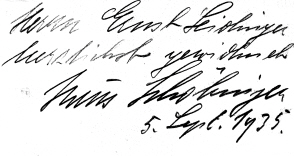 Herrn Ernst Seidinger
herzlichst gewidmet
Hans Schöbinger
5. Sept. 1935.